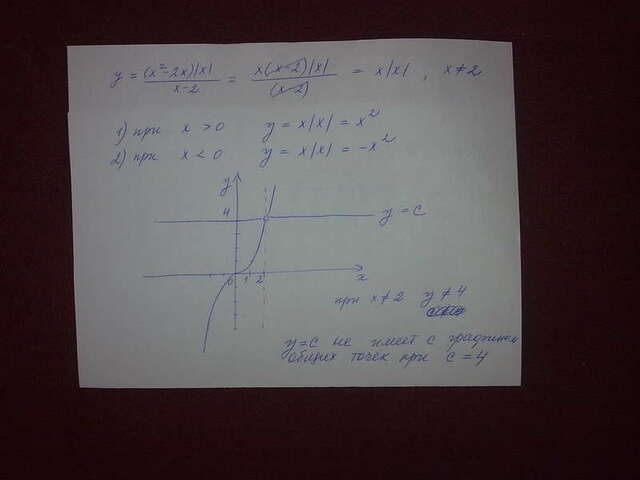 y = (x²-2x)|x| / x-2 = x(x-2)|x| / (x-2) = x|x| , x≠2
1) при x > 0 y = x|x| = x²
2) при x < 0 y = x|x| = -x²
y
4
y = c
0 1 2 x
при x≠2 y≠4
y=c не имеет с графиком
общих точек при c = 4